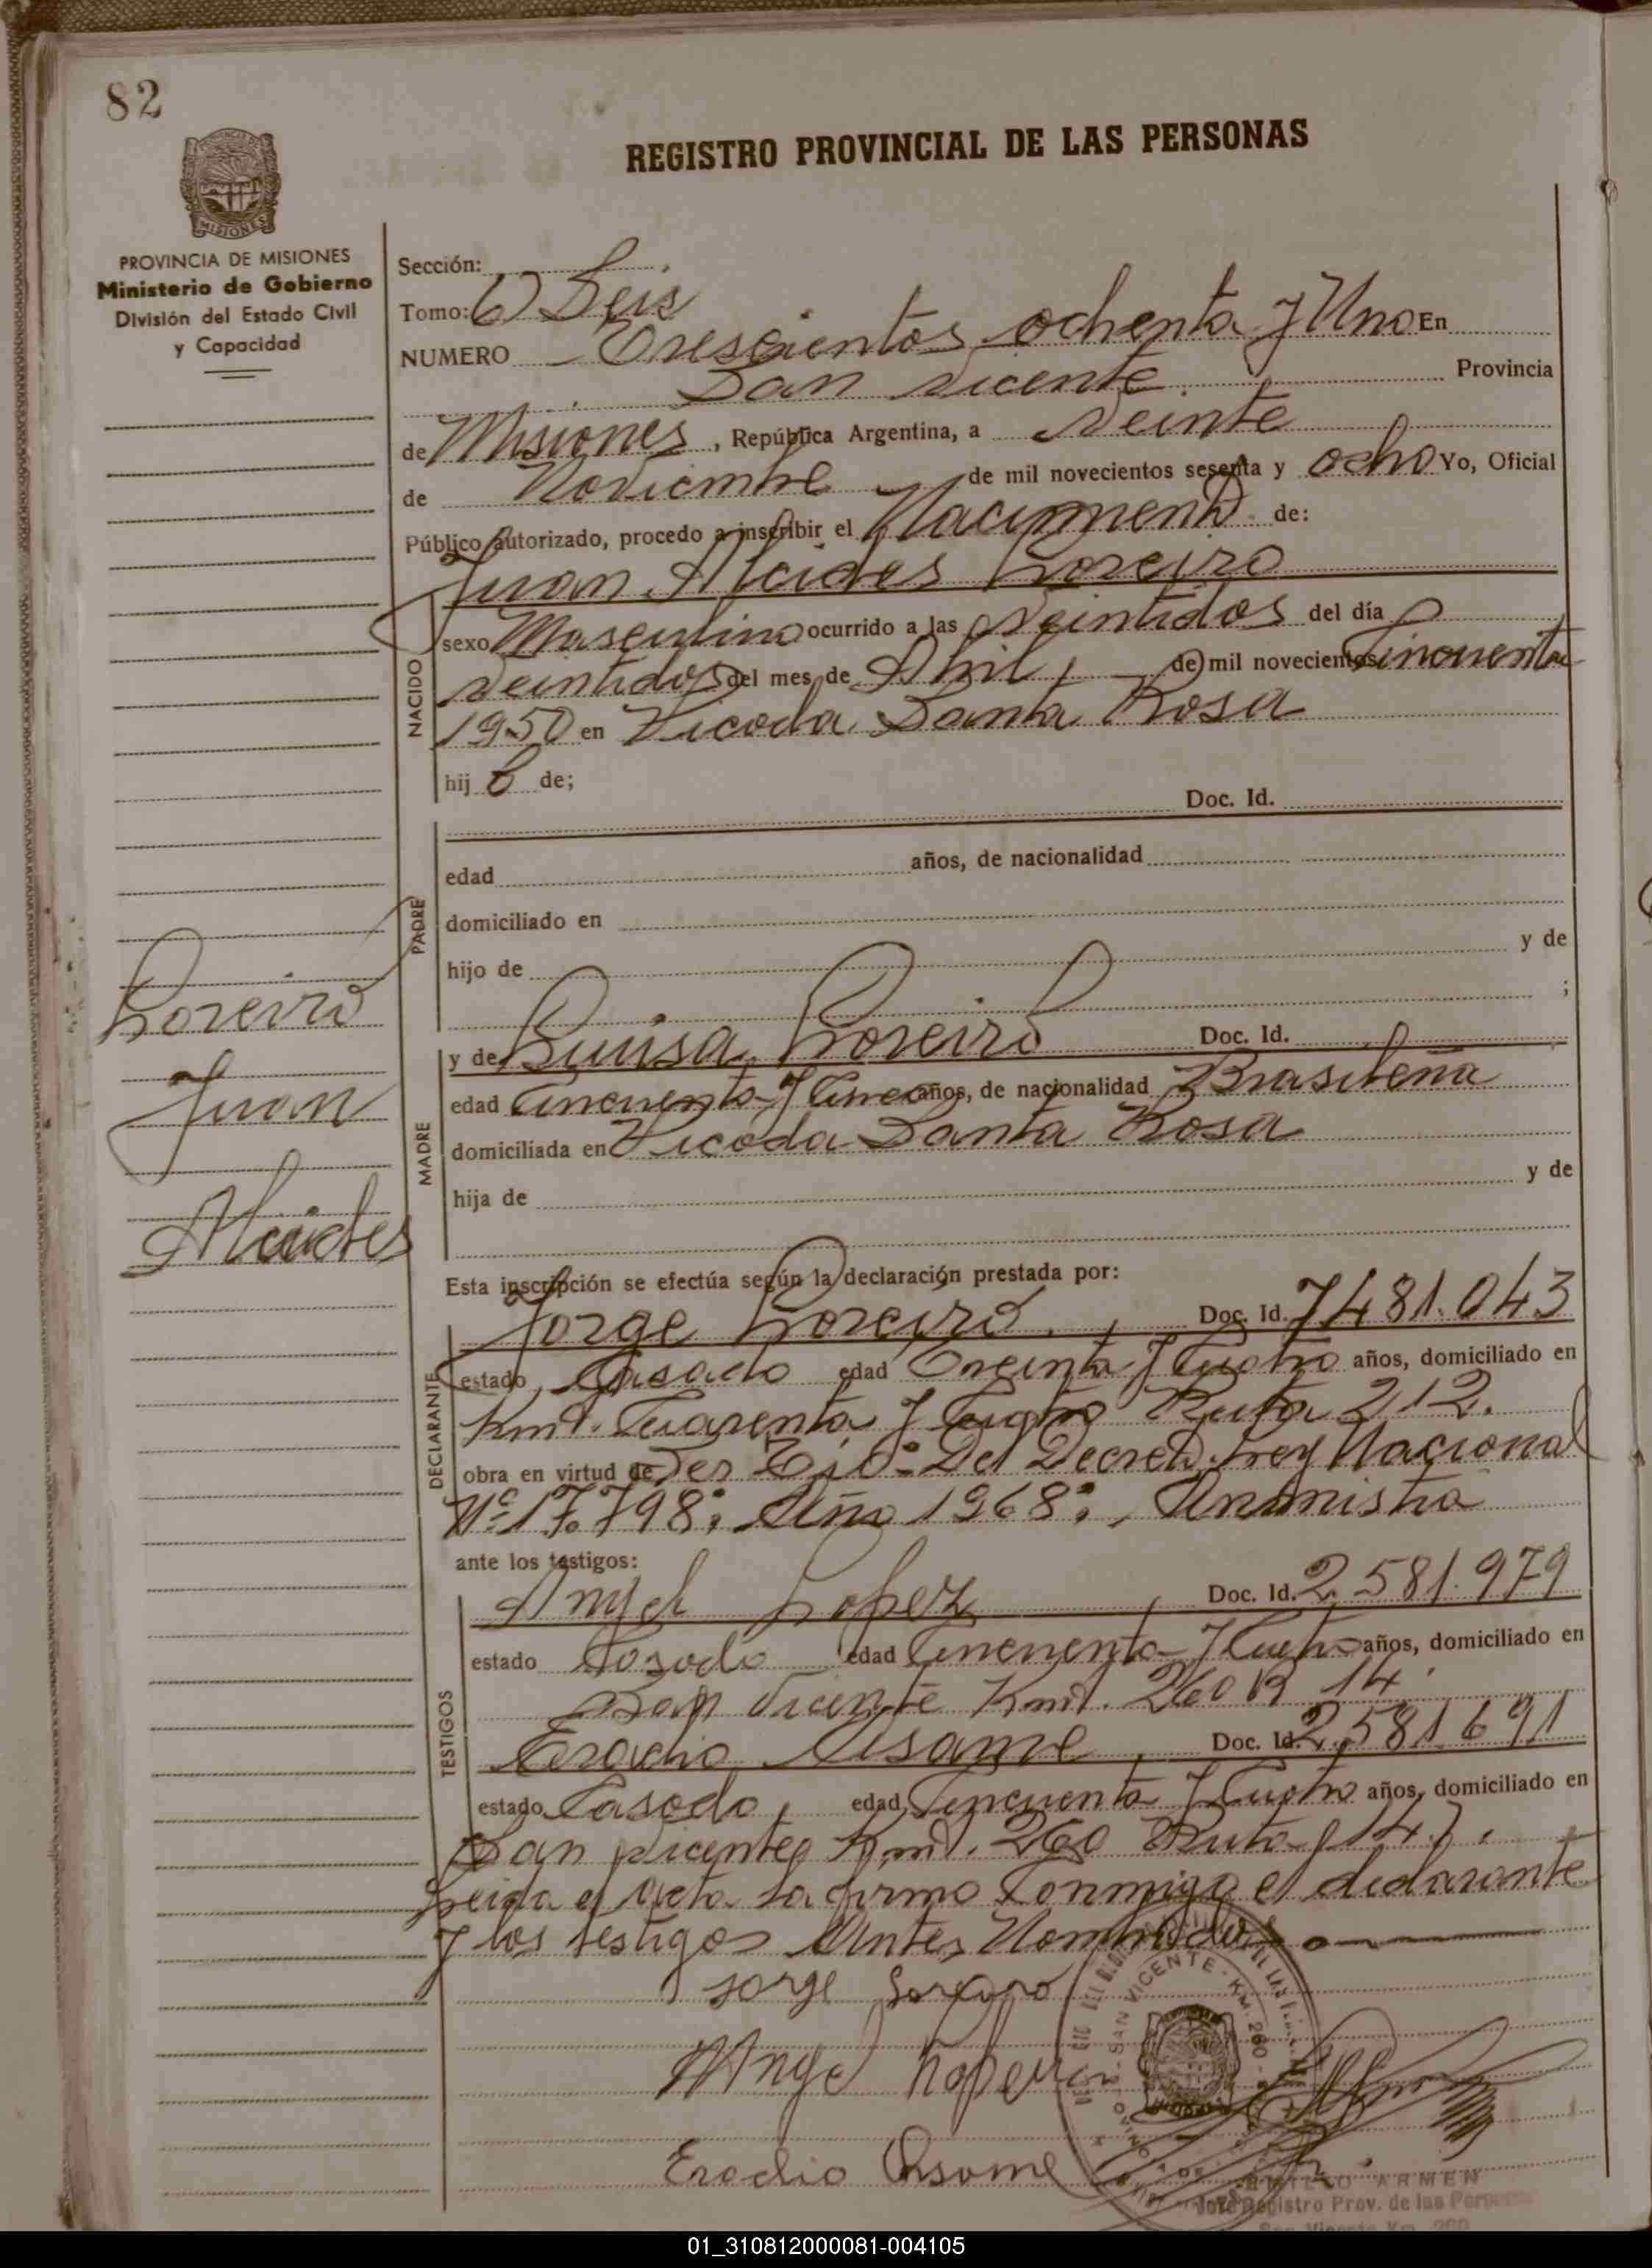 82
REGISTRO PROVINCIAL DE LAS PERSONAS
MISIONES
PROVINCIA DE MISIONES
Ministerio de Gobierno
División del Estado Civil
y Capacidad
Sección:
Tomo: 6) Seis
NUMERO Trescientos ochenta y Uno En
San Vicente Provincia
de Misiones, República Argentina, a Veinte
de Noviembre de mil novecientos sesenta y ocho Yo, Oficial
Público autorizado, procedo a inscribir el Nacimiento de:
Juan Alcides Loreiro
NACIDO
sexo Masculino ocurrido a las Veintidos del día
Veintidos del mes de Abril, de mil novecientos Cincuenta
1950 en Picada Santa Rosa
hij o de;
Doc. Id.
PADRE
edad años, de nacionalidad
domiciliado en
hijo de y de
;
Loreiro
Juan
Alcides
MADRE
y de Luisa Loreiro Doc. Id.
edad Cincuenta y Cinco años, de nacionalidad Brasileña
domiciliada en Picada Santa Rosa
hija de y de
Esta inscripción se efectúa según la declaración prestada por:
DECLARANTE
Jorge Loreiro. Doc. Id. 7481.043
estado Casado edad Treinta y Cuatro años, domiciliado en
Kmt. Cuarenta y Cuatro Ruta 212.
obra en virtud de Del Decreto Ley Nacional
Nº 17.798: Año 1968:, Amnistia
ante los testigos:
TESTIGOS
Angel Lopez Doc. Id. 2.581.979
estado Casado edad Cincuenta y Cuatro años, domiciliado en
San Vicente Kmt. 260 R 14
Eradio Doc. Id. 2.581.691
estado Casado, edad Cincuenta y Cuatro años, domiciliado en
San Vicente Kmt. 260 Ruta (14).
Leida el acta la firma Conmigo el declarante
y los testigos Antes Nombrados
Jorge
Angel
Eradio
SAN VICENTE - KM. 260
ARMEN
Jefe Registro Prov. de las
San Vicente Km. 260
01_310812000081-004105